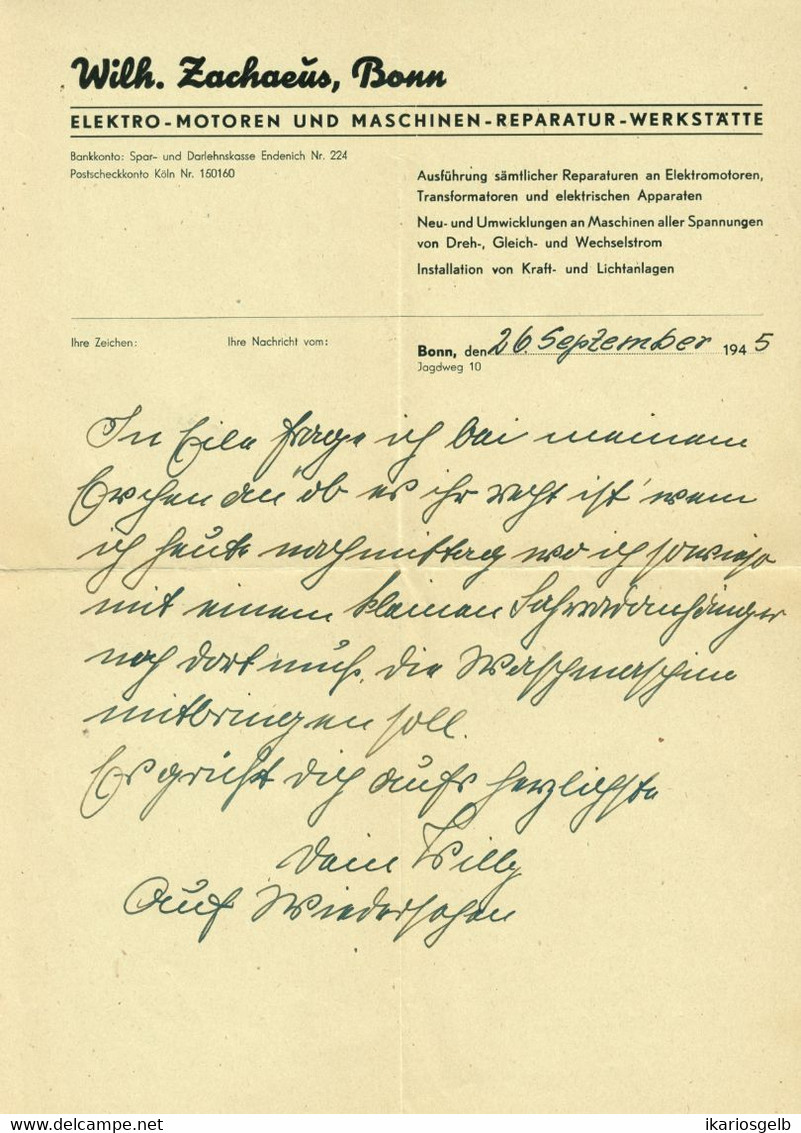 Wilh. Zachaeus, Bonn
ELEKTRO-MOTOREN UND MASCHINEN-REPARATUR-WERKSTÄTTE
Bankkonto: Spar- und Darlehnskasse Endenich Nr. 224
Postscheckkonto Köln Nr. 150160
Ausführung sämtlicher Reparaturen an Elektromotoren,
Transformatoren und elektrischen Apparaten
Neu- und Umwicklungen an Maschinen aller Spannungen
von Dreh-, Gleich- und Wechselstrom
Installation von Kraft- und Lichtanlagen
Ihre Zeichen: Ihre Nachricht vom: Bonn, den 26. September 1945
Jagdweg 10
In Eile frage ich bei meinem
an ob es ihr recht ist wenn
ich heute nachmittag wo ich sowieso
mit einem kleinen Fahrradanhänger
nach dort muß, die Waschmaschine
mitbringen soll.
Es grüßt dich aufs herzlichste
dein Willy
Auf Wiedersehen
www.delcampe.net
ikariosgelb